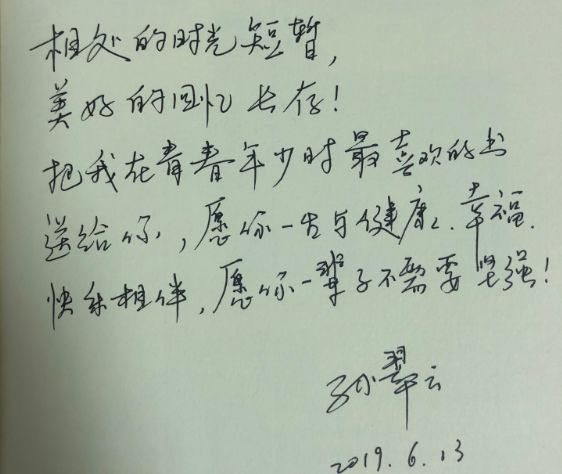 相处的时光短暂,
美好的回忆长存!
把我在青春年少时最喜欢的书
送给你,愿你一生与健康、幸福、
快乐相伴,愿你一辈子不需要坚强!
孙翠云
2019.6.13